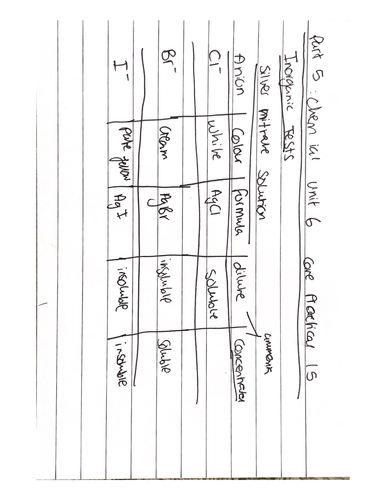 Part 5 : Chemical Unit 6 Core Practical 15
Inorganic Tests
Silver nitrate Solution
comments
Anion Colour formula dilute Concentrated
Cl⁻ white AgCl Soluble
Br⁻ cream AgBr insoluble Soluble
I⁻ pale yellow AgI insoluble insoluble